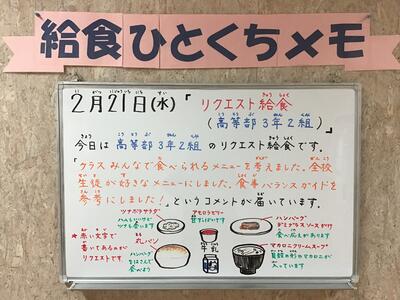 給食ひとくちメモ
2月21日(水)「リクエスト給食
(高等部3年2組)」
今日は高等部3年2組のリクエスト給食です。
「クラスみんなで食べられるメニューを考えました。全校
生徒が好きなメニューにしました。食事バランスガイドを
参考にしました!」というコメントが届いています。
ツナポテサラダ
アセロラゼリー
ハンバーグ
デミグラスソースがけ
食べ応えがあります
★赤い文字で
書いてあるのが
リクエストです
丸パン
ハンバーグ
をはさんで
食べよう
牛乳
マカロニクリームスープ
貝殻の形のマカロニが
入っています